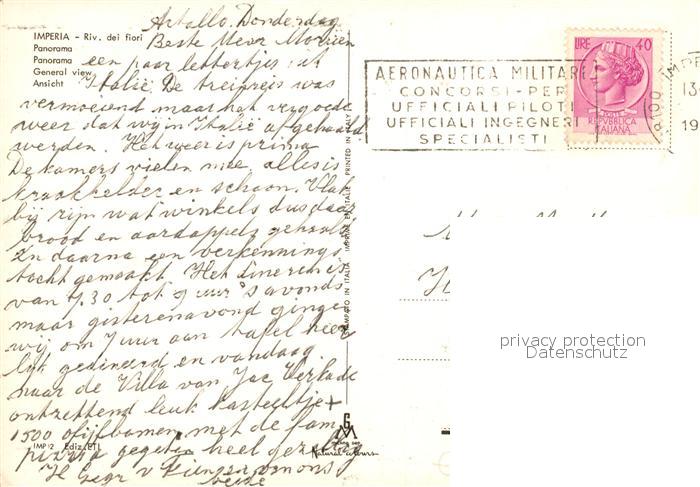 Artallo. Donderdag
IMPERIA - Riv. dei fiori
Panorama
Panorama
General view
Ansicht
Beste Mevr
een paar lettertjes uit
Italië. De treinreis was
vermoeiend maar het vergoedde
weer dat wij in Italië afgehaald
werden. Het weer is prima
De kamers vielen mee alles is
kraakhelder en schoon. Vlak
bij zijn wat winkels dus daar
brood en aardappels gehaald
En daarna een verkennings
tocht gemaakt. Het diner is
van 7.30 tot 9 uur 's avonds
maar gisterenavond gingen
wij om 7 uur aan tafel heer
lijk gedineerd en vandaag
naar de Villa van Jac Verkade
ontzettend leuk kasteeltje +
1500 olijfbomen met de fam
pizza gegeten heel gezellig
H Gegr v van ons
beide
IMP 12 Ediz. ETI
Natural colours
STAMPATO IN ITALIA IMPRIME EN ITALIE PRINTED IN ITALY
AERONAUTICA MILITARE
CONCORSI-PER
UFFICIALI PILOTI
UFFICIALI INGEGNERI
SPECIALISTI
LIRE 40
REPVBBLICA
ITALIANA
8100 IMPE
13
19
privacy protection
Datenschutz